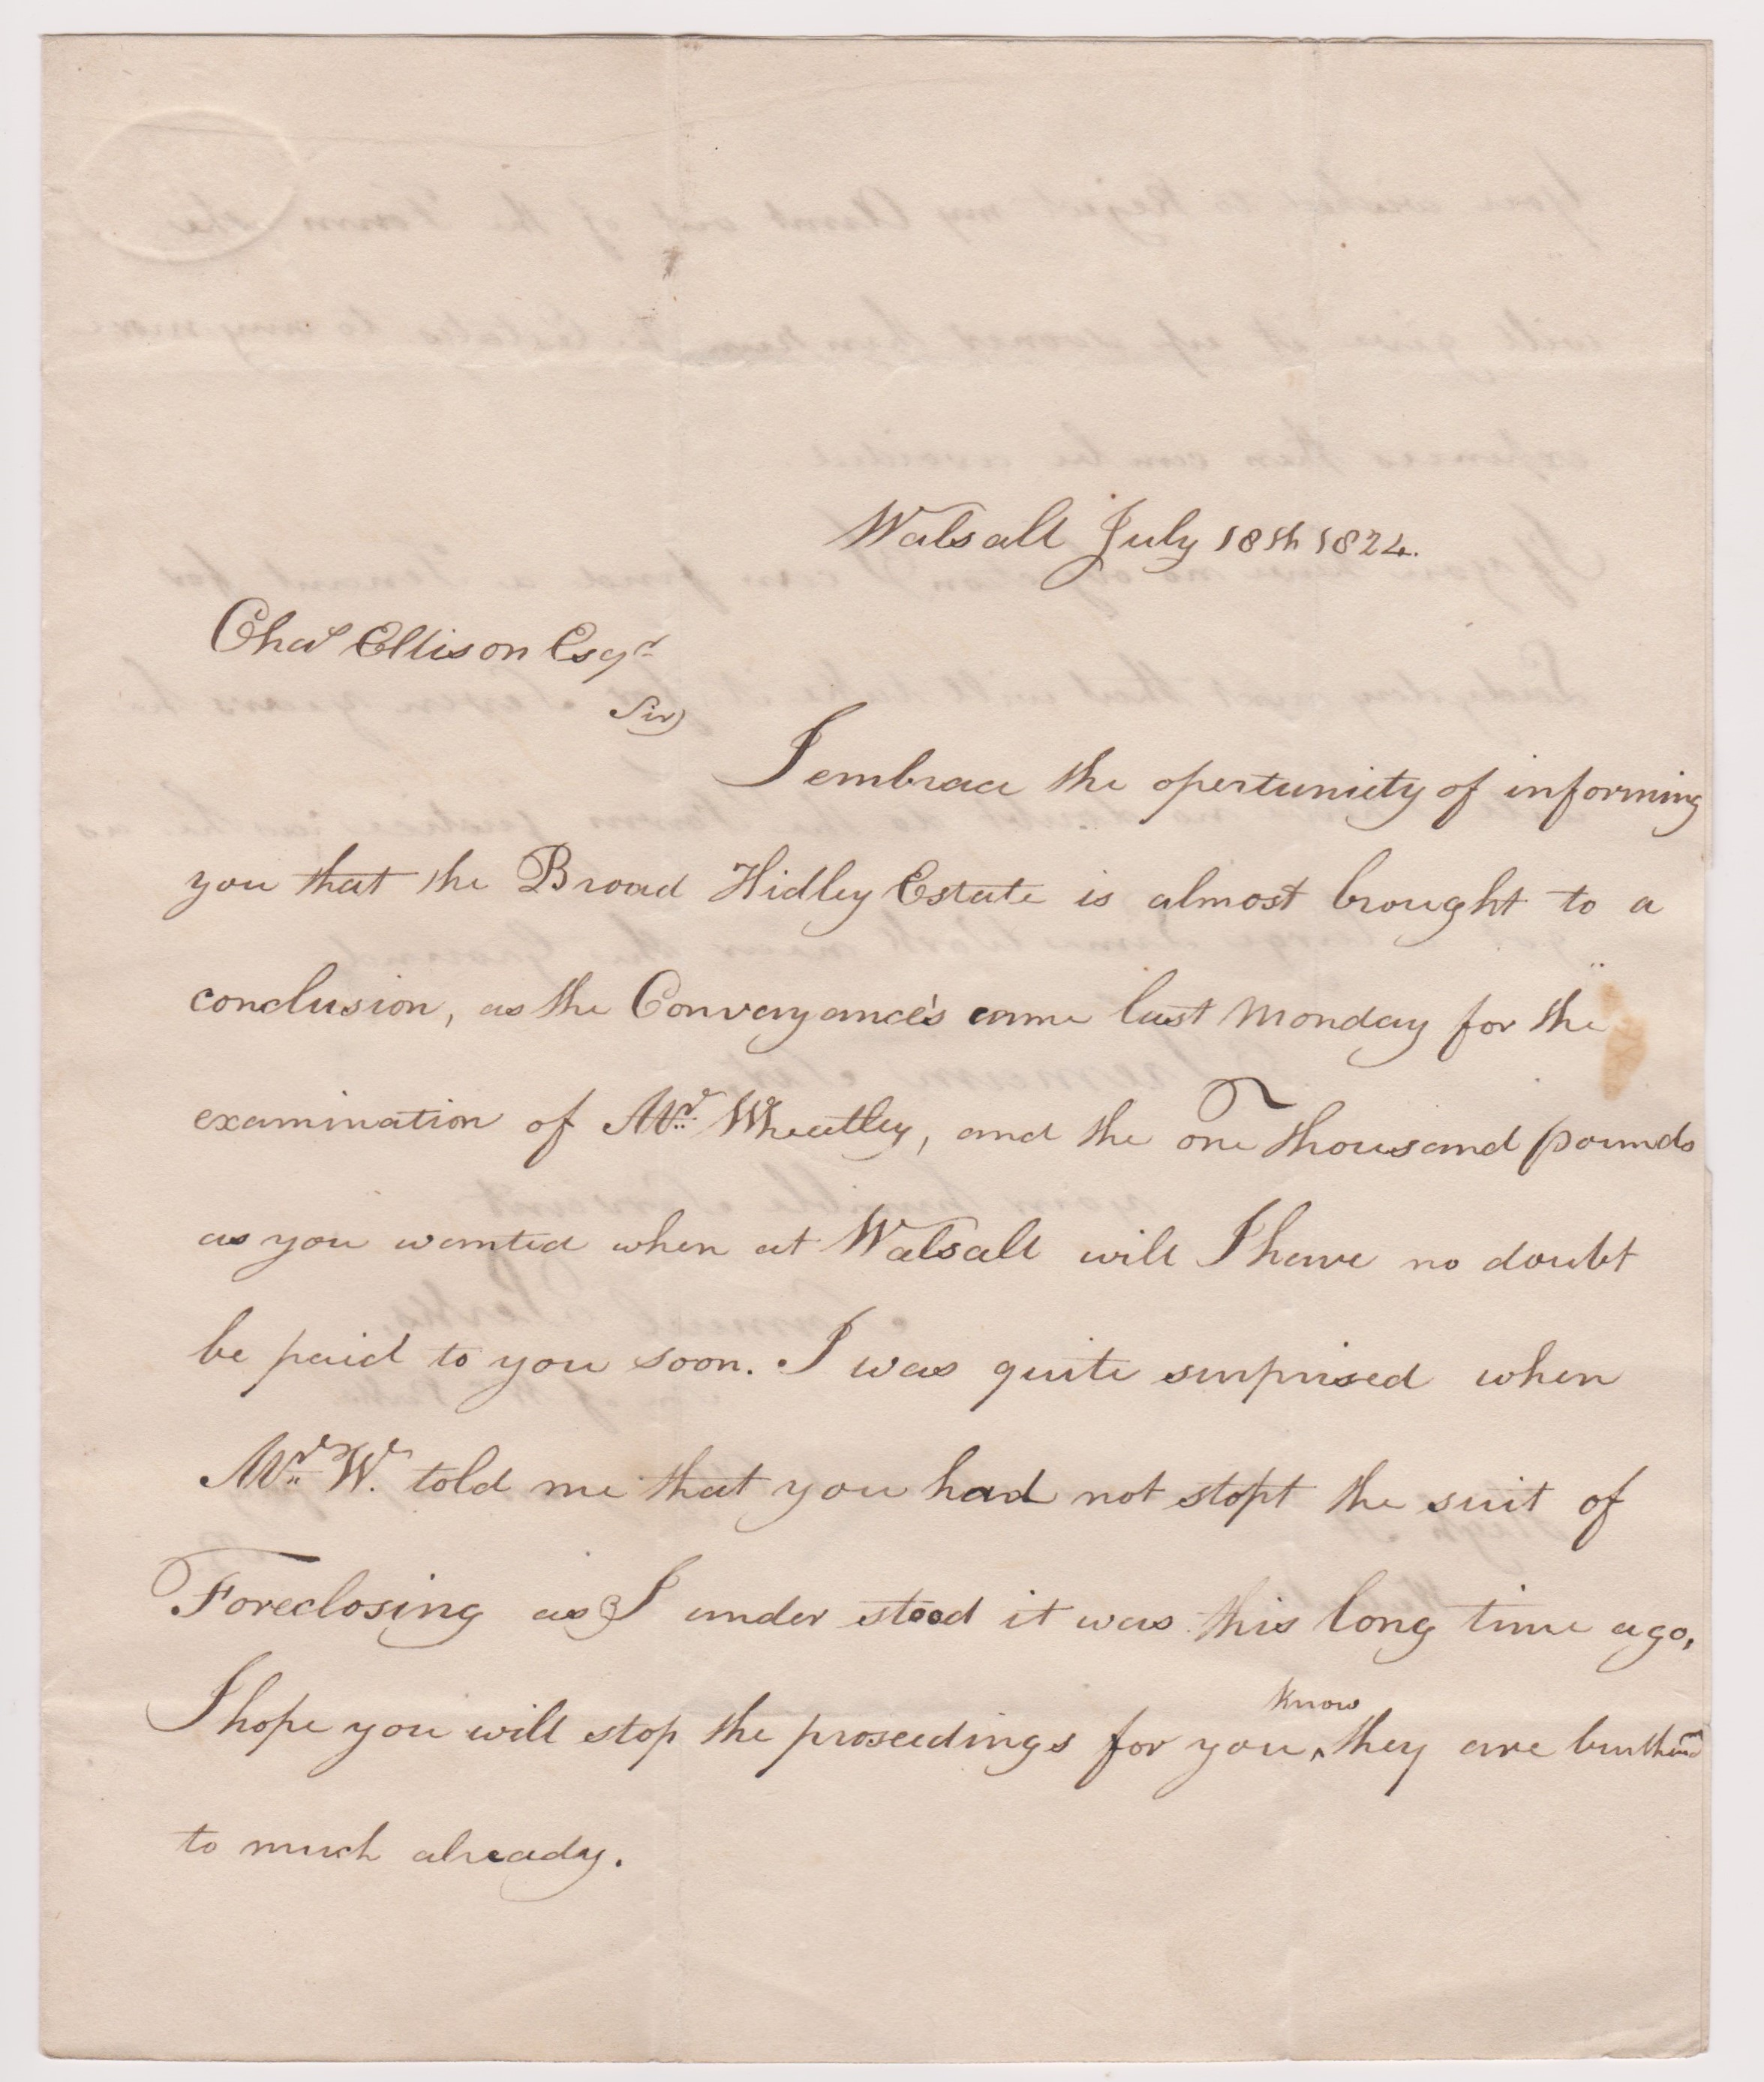 Walsall July 18th 1824.
Chas Ellison Esqr
Sir
I embrace the opertuniety of informing
you that the Broad Hidley Estate is almost brought to a
conclusion, as the Convayance's came last Monday for the
examination of Mr. Wheatley, and the one Thousand pounds
as you wanted when at Walsall will I have no doubt
be paid to you soon. I was quite surprised when
Mr. W. told me that you had not stopt the suit of
Foreclosing as I under stood it was this long time ago,
I hope you will stop the proseedings for you know they are
to much already.